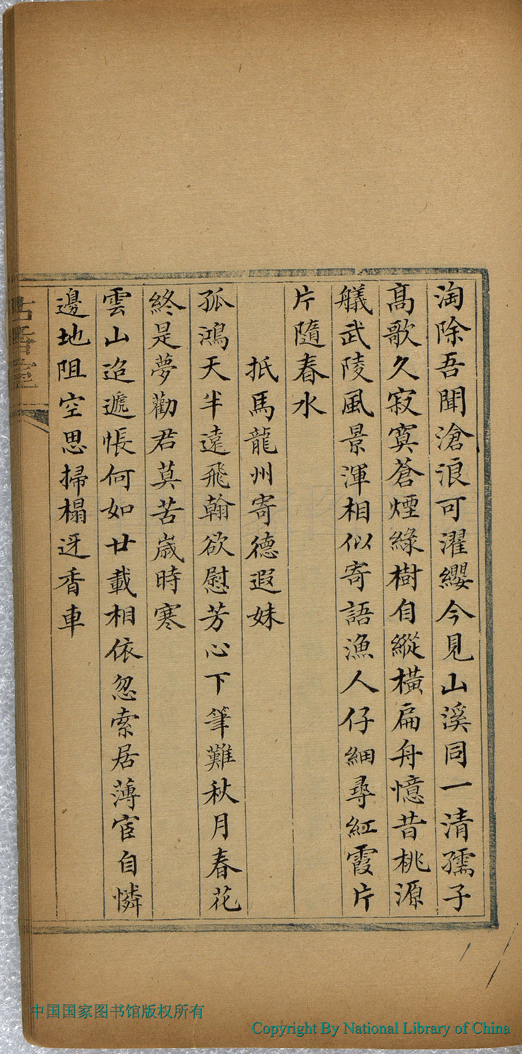 淘除吾聞滄浪可濯纓今見山溪同一清孺子
髙歌久寂寞蒼煙綠樹自縱橫扁舟憶昔桃源
艤武陵風景渾相似寄語漁人仔細尋紅霞片
片隨春水
抵馬龍州寄德遐妹
孤鴻天半遠飛翰欲慰芳心下筆難秋月春花
終是夢勸君莫苦歲時寒
雲山迢遞悵何如廿載相依忽索居薄宦自憐
邊地阻空思掃榻迓香車
中国国家图书馆版权所有
Copyright By National Library of China